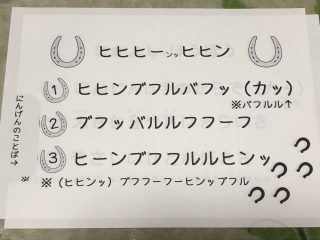 ヒヒヒーンッヒヒン
① ヒヒンブフルバフッ（カッ）
※バフルル↑
② ブフッバルルフフーフ
③ ヒーンブフフルルヒンッ
※（ヒヒンッ）ブフフーフーヒンップフル
にんげんのことば→
※